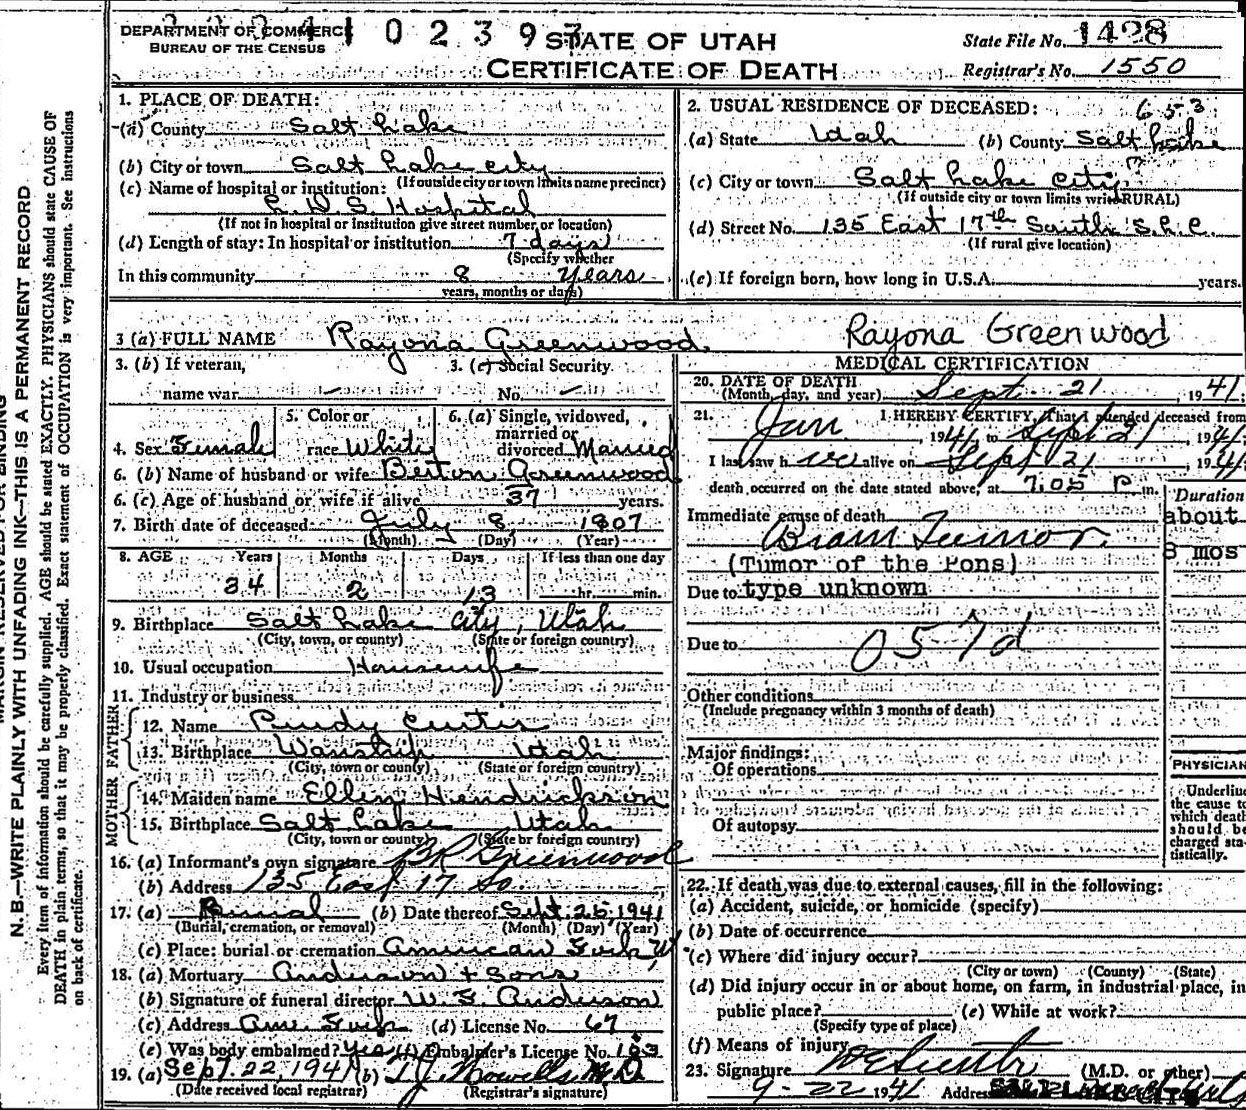 DEPARTMENT OF COMMERCE
BUREAU OF THE CENSUS
4 1 0 2 3 9
STATE OF UTAH
CERTIFICATE OF DEATH
State File No. 1428
Registrar's No. 1550
1. PLACE OF DEATH:
(a) County Salt Lake
(b) City or town Salt Lake City
(If outside city or town limits name precinct)
(c) Name of hospital or institution:
L. D. S. Hospital
(If not in hospital or institution give street number or location)
(d) Length of stay: In hospital or institution 7 days
(Specify whether
In this community 8 years
years, months or days)
2. USUAL RESIDENCE OF DECEASED: 653
(a) State Utah (b) County Salt Lake
(c) City or town Salt Lake City
(If outside city or town limits write RURAL)
(d) Street No. 135 East 17th South S.L.C.
(If rural give location)
(e) If foreign born, how long in U.S.A. years.
3 (a) FULL NAME Rayona Greenwood
Rayona Greenwood
3. (b) If veteran,
name war -
3. (c) Social Security
No. -
4. Sex Female
5. Color or
race White
6. (a) Single, widowed,
married or
divorced Married
6. (b) Name of husband or wife Berton Greenwood
6. (c) Age of husband or wife if alive 37 years.
7. Birth date of deceased July 8 1907
(Month) (Day) (Year)
8. AGE Years Months Days If less than one day
34 2 13 hr. min.
9. Birthplace Salt Lake City, Utah
(City, town, or county) (State or foreign country)
10. Usual occupation Housewife
11. Industry or business
FATHER
12. Name Curtis
13. Birthplace Wanship Utah
(City, town or county) (State or foreign country)
MOTHER
14. Maiden name Ellen Hendrickson
15. Birthplace Salt Lake Utah
(City, town or county) (State or foreign country)
16. (a) Informant's own signature BR Greenwood
(b) Address 135 East 17 So.
17. (a) Burial (b) Date thereof Sept. 25, 1941
(Burial, cremation, or removal) (Month) (Day) (Year)
(c) Place: burial or cremation American Fork, Ut
18. (a) Mortuary Anderson + Sons
(b) Signature of funeral director W. E. Anderson
(c) Address Am. Fork (d) License No. 67
(e) Was body embalmed? Yes (f) Embalmer's License No. 163
19. (a) Sept. 22, 1941 (b) T. J. Howells M.D.
(Date received local registrar) (Registrar's signature)
MEDICAL CERTIFICATION
20. DATE OF DEATH
(Month, day, and year) Sept. 21, 1941;
21. I HEREBY CERTIFY, That I attended deceased from
Jan, 1941, to Sept 21, 1941;
I last saw her alive on Sept 21, 1941;
death occurred on the date stated above, at 7.05 P. m.
Duration
Immediate cause of death about
Brain Tumor 8 mos
(Tumor of the Pons)
Due to type unknown
Due to 057d
Other conditions
(Include pregnancy within 3 months of death)
Major findings:
Of operations
Of autopsy
PHYSICIAN
Underline
the cause to
which death
should be
charged sta-
tistically.
22. If death was due to external causes, fill in the following:
(a) Accident, suicide, or homicide (specify)
(b) Date of occurrence
(c) Where did injury occur?
(City or town) (County) (State)
(d) Did injury occur in or about home, on farm, in industrial place, in
public place? (e) While at work?
(Specify type of place)
(f) Means of injury
23. Signature (M.D. or other)
9-22 1941 Address
MARGIN RESERVED FOR BINDING
N. B.—WRITE PLAINLY WITH UNFADING INK—THIS IS A PERMANENT RECORD
Every item of information should be carefully supplied. AGE should be stated EXACTLY. PHYSICIANS should state CAUSE OF
DEATH in plain terms, so that it may be properly classified. Exact statement of OCCUPATION is very important. See instructions
on back of certificate.